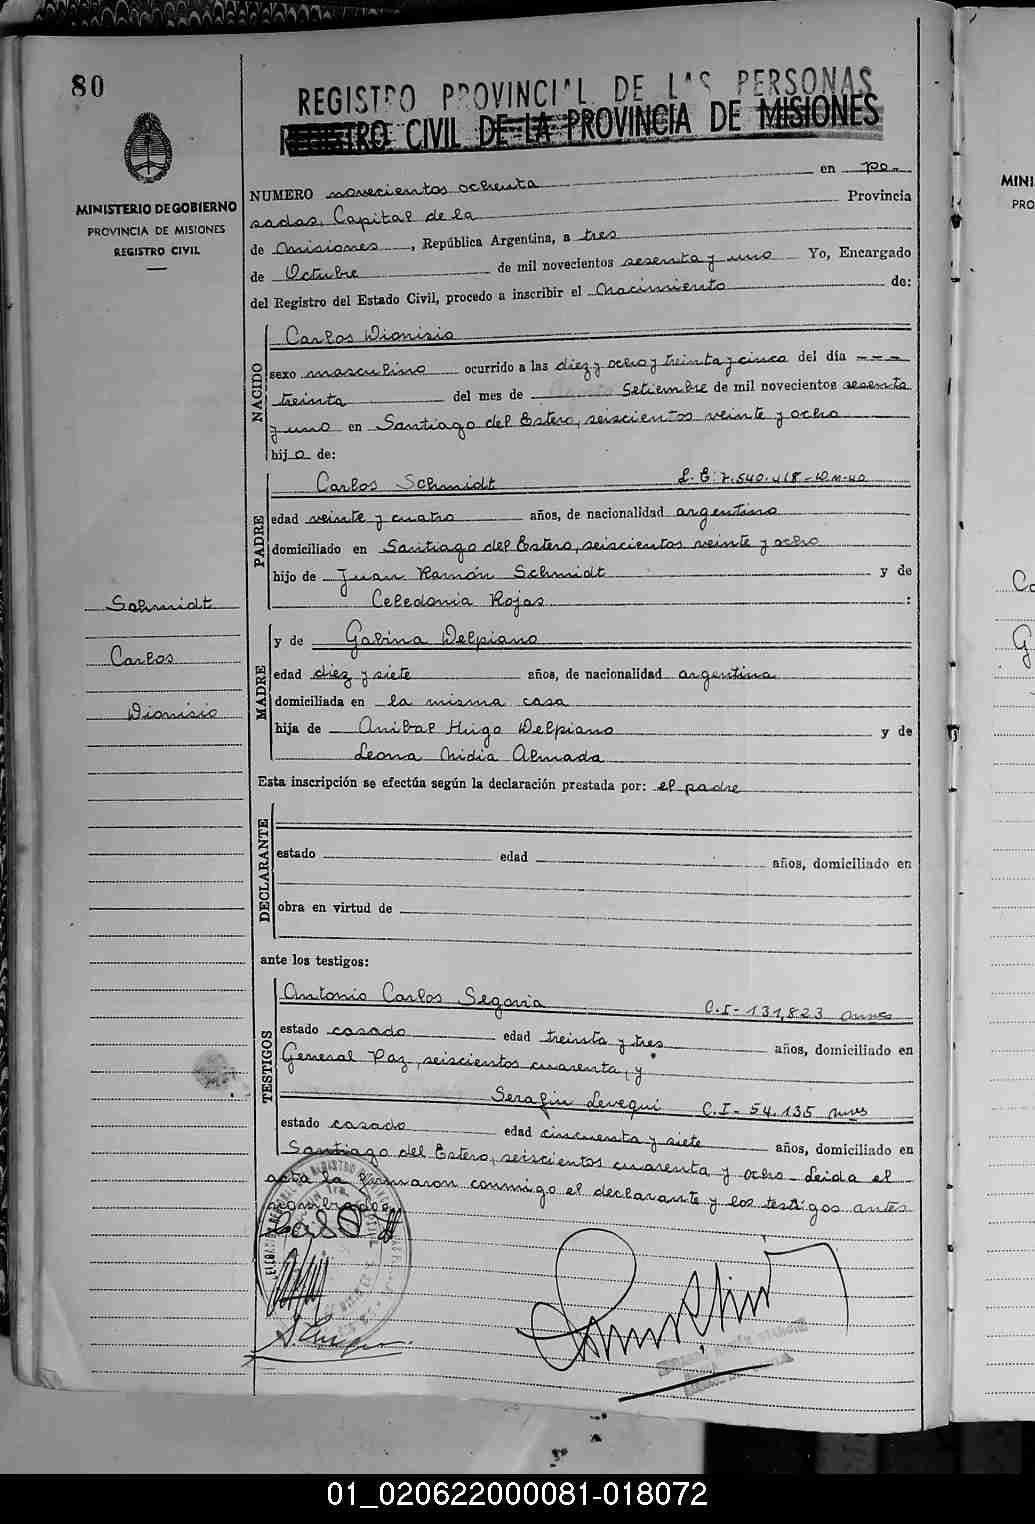 80
REGISTRO PROVINCIAL DE LAS PERSONAS
REGISTRO CIVIL DE LA PROVINCIA DE MISIONES
MINISTERIO DE GOBIERNO
PROVINCIA DE MISIONES
REGISTRO CIVIL
NUMERO novecientos ochenta en Po-
sadas, Capital de la Provincia
de Misiones, República Argentina, a tres
de Octubre de mil novecientos sesenta y uno Yo, Encargado
del Registro del Estado Civil, procedo a inscribir el Nacimiento de:
NACIDO
Carlos Dionisio
sexo masculino ocurrido a las diez y ocho y treinta y cinco del día ---
treinta del mes de Setiembre de mil novecientos sesenta
y uno en Santiago del Estero, seiscientos veinte y ocho
hijo de:
PADRE
Carlos Schmidt L.E. 7.540.418-D.M-40
edad veinte y cuatro años, de nacionalidad argentino
domiciliado en Santiago del Estero, seiscientos veinte y ocho
hijo de Juan Ramón Schmidt y de
Celedonia Rojas :
Schmidt
Carlos
Dionisio
MADRE
y de Gabina Delpiano
edad diez y siete años, de nacionalidad argentina
domiciliada en la misma casa
hija de Anibal Hugo Delpiano y de
Leona Nidia Almada
Esta inscripción se efectúa según la declaración prestada por: el padre
DECLARANTE
estado edad años, domiciliado en
obra en virtud de
ante los testigos:
TESTIGOS
Antonio Carlos Segovia C.I-131,823 mnes
estado casado edad treinta y tres años, domiciliado en
General Paz, seiscientos cuarenta, y
Serafin Levequi C.I-54.135 mnes
estado casado edad cincuenta y siete años, domiciliado en
Santiago del Estero, seiscientos cuarenta y ocho. Leida el
acta la firmaron conmigo el declarante y los testigos antes
nombrados
MINI
PRO
01_020622000081-018072